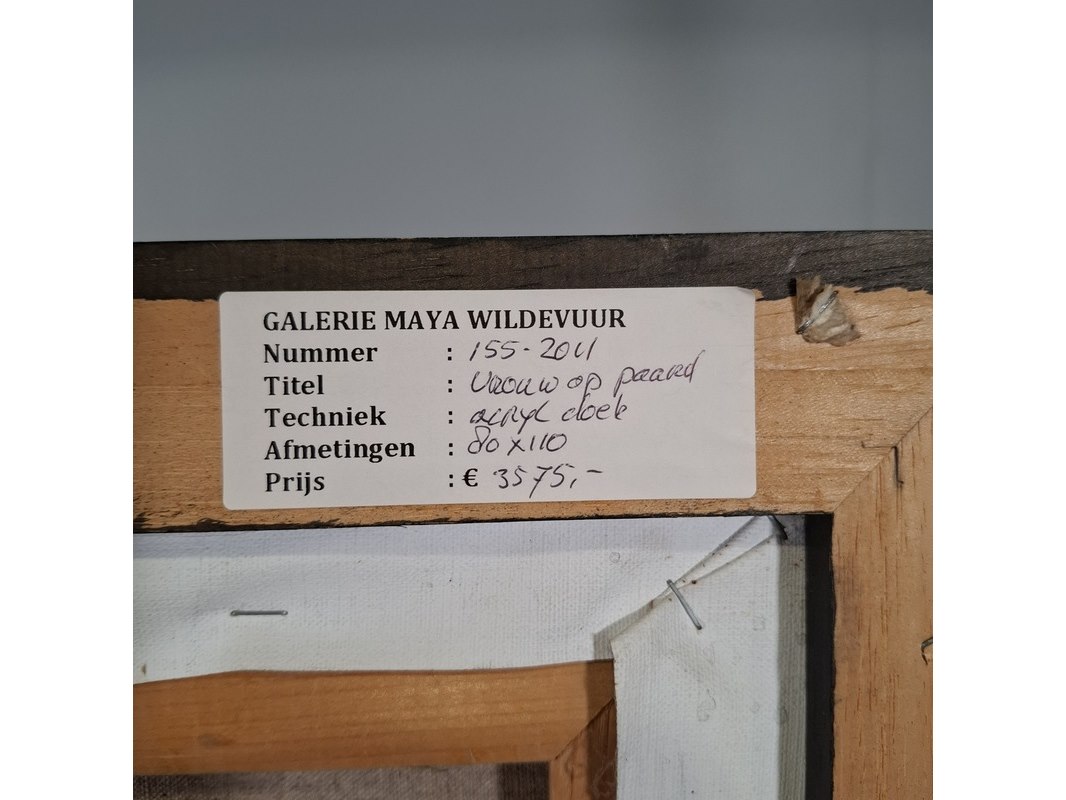 GALERIE MAYA WILDEVUUR
Nummer : 155-2011
Titel : Vrouw op paard
Techniek : acryl doek
Afmetingen : 80 x 110
Prijs : € 3575,-